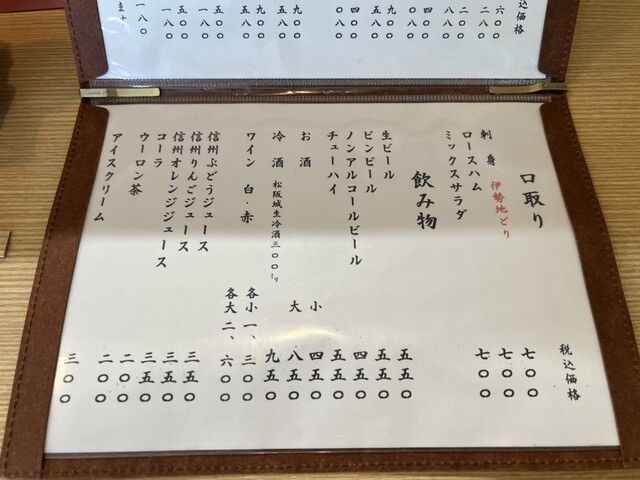 込価格
税込価格
口取り
刺身 伊勢地どり 七〇〇
ロースハム 七〇〇
ミックスサラダ 七〇〇
飲み物
生ビール 五五〇
ビンビール 五五〇
ノンアルコールビール 四五〇
チューハイ 五五〇
お酒 小 四五〇
大 八五〇
冷酒 松阪城生冷酒三〇〇㍉ 九五〇
ワイン 白・赤 各小一、三〇〇
各大二、六〇〇
信州ぶどうジュース 三五〇
信州りんごジュース 三五〇
信州オレンジジュース 三五〇
コーラ 二〇〇
ウーロン茶 二〇〇
アイスクリーム 三〇〇